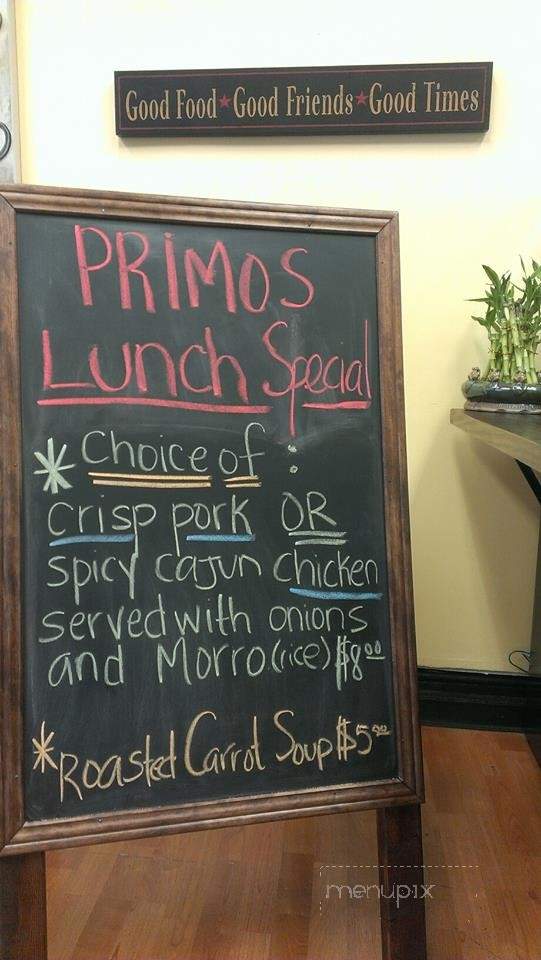 Good Food★Good Friends★Good Times
PRIMOS
Lunch Special
* Choice of :
crisp pork OR
spicy cajun chicken
served with onions
and Morro (rice) $8.00
* Roasted Carrot Soup $5.00
menupix